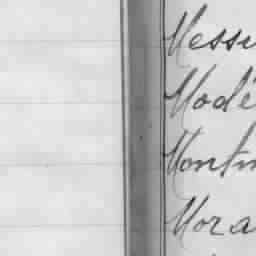 Messi
Modé
Montm
Mora